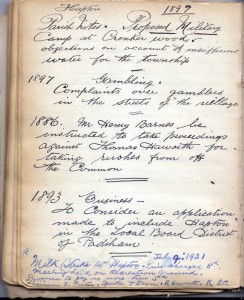 Hapton 1897
Parish Notes. Proposed Military
Camp at Cronker wood.
objections on account of insufficient
water for the township
1897 Gambling.
Complaints over gamblers
in the streets of the village
1886. Mr Henry Barnes be
instructed to take proceedings
against Thomas Haworth for
taking rushes from off
the Common
1893 Business
To Consider an application
made to include Hapton
in the Local Board District
of Padiham
Milk Strike at Hapton July 9, 1921
meeting held on Recreation Ground